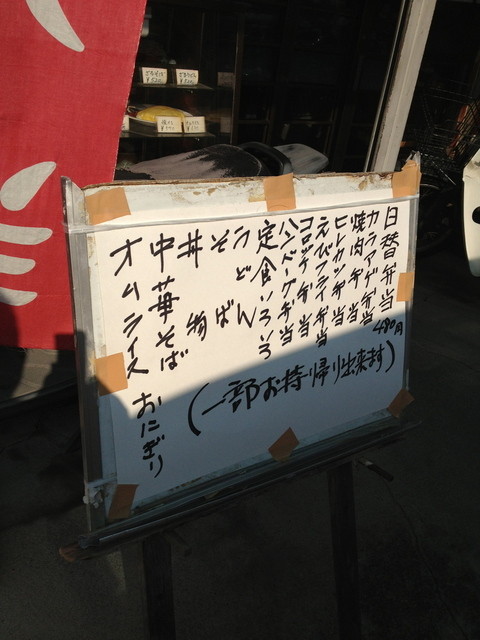 日替弁当
カラアゲ弁当 480円
焼肉弁当
ヒレカツ弁当
えびフライ弁当
コロッケ弁当
ハンバーグ弁当
定食いろいろ
うどん
そば
丼物
中華そば
オムライス おにぎり
(一部お持ち帰り出来ます)